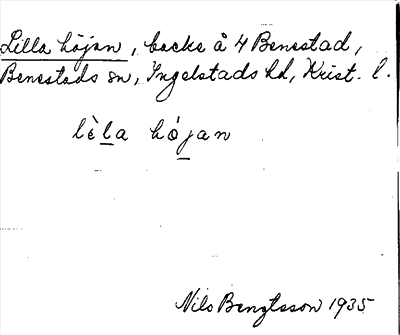 Lilla höjan, backe å 4 Benestad,
Benestads sn, Ingelstads hd, Krist. l.
lèla hójan
Nils Bengtsson 1935